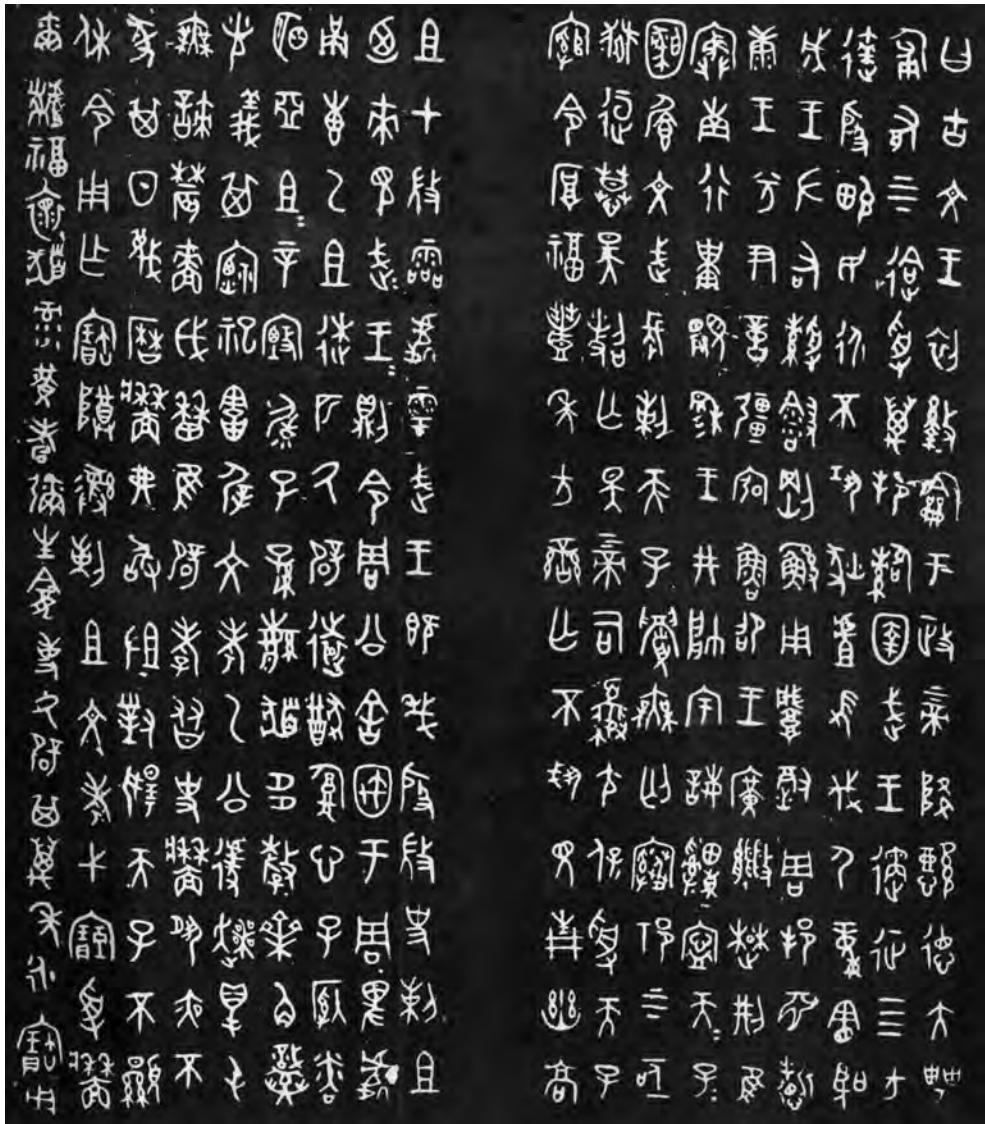 曰古文王初盭龢于政上帝降懿德大甹
匍有上下迨受萬邦䚄圉武王遹征四方
達殷畯民永不巩狄虘髟伐尸童憲聖
成王左右綬剛鯀用肇徹周邦淵哲
康王兮尹億彊宖魯卲王廣能楚荊隹
寏南行祗顯穆王井帥宇誨申寧天子=
圝文武長剌天子眉無匄上下亟
逗慕昊亡斁上帝司夒尪保受天子
綰令厚福豐年方蠻亡不見青幽高
且才𢼸霝處雩武王既𢦏殷𢼸史剌且
乃來見武王=則令周公舍㝢于周卑處
叀乙且逑匹氒辟遠猷腹心子
明亞且=辛毓子孫多孷齊角
光義其祀害屖文考乙公遽爽得屯
無諫農嗇戉曆隹辟孝友史牆夙夜不
㒸其日蔑曆牆弗敢沮對揚天子不顯
休令用乍寶尊彝剌且文考弋受牆
爾福懷彔黃耇彌生堪事氒辟其萬年永寶用